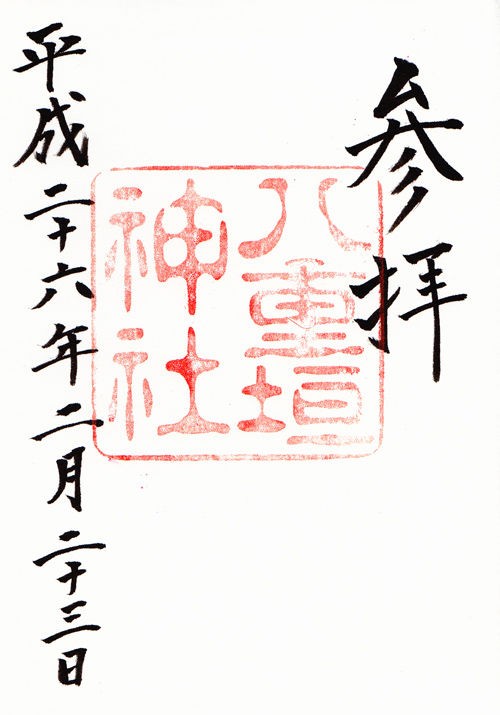 参拝
八重垣
神社
平成二十六年二月二十三日